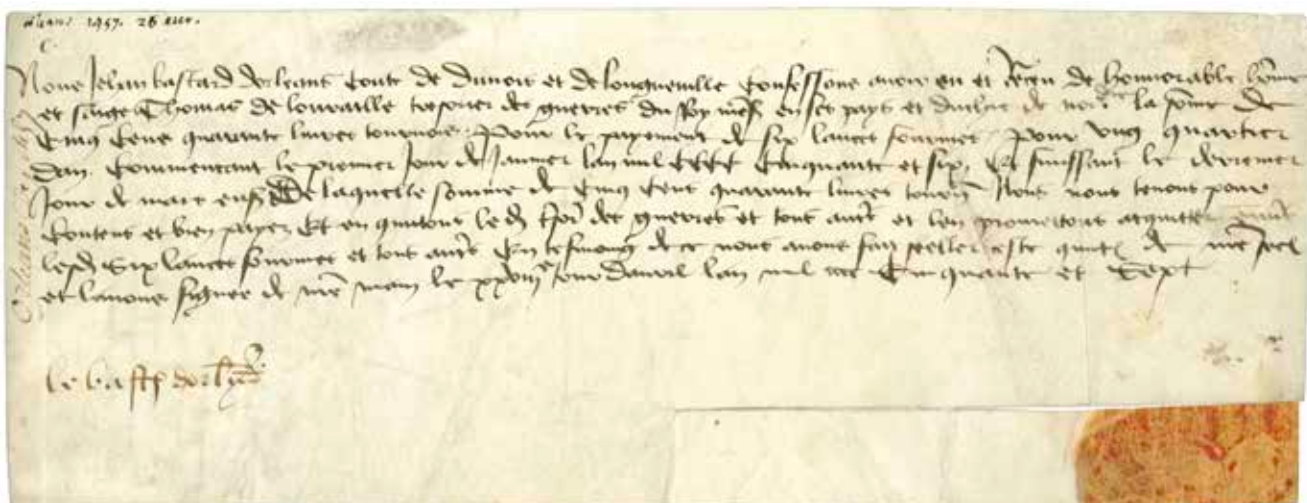 1457. 26
Nous Jehan bastard dorleans conte de dunois et de longueville confessons avoir eu et receu de honnorable hõme
et saige Thomas de louraille tresorier des guerres du Roy en ses pays et duchie de norm̃ la sõme de
Cinq cens quarante livres tournois Pour le payement de six lances fournies Pour ung quartier
dan commencant le premier jour de Janvier lan mil CCCC Cinquante et six Et finissant le derrenier
jour de mars De laquelle somme de Cinq cens quarante livres tourñ Nous nous tenons pour
contens et bien payez Et en quitons des guerres et tous autres et len promettons acquiter envers
six lances fournies et tous autres En tesmoing de ce nous avons fait seeller ceste de nr̃e seel
et lavons signee de nr̃e main le jour davril lan mil cccc Cinquante et Sept
le bast dorl